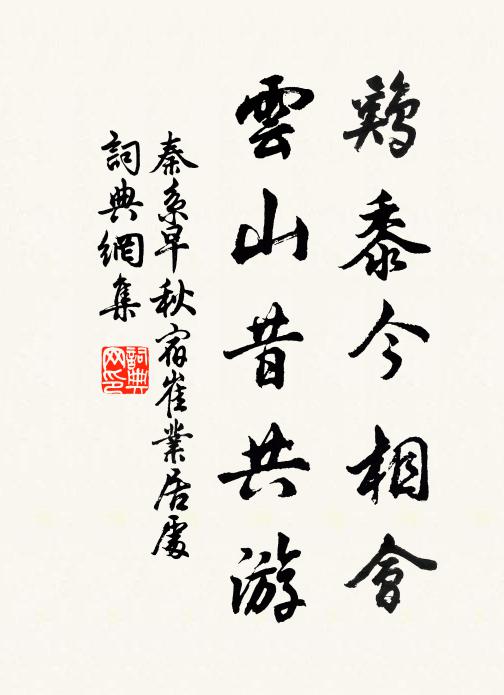 鷄黍今相會
雲山昔共游
秦系早秋宿崔業居處
詞典網集
詞典網印